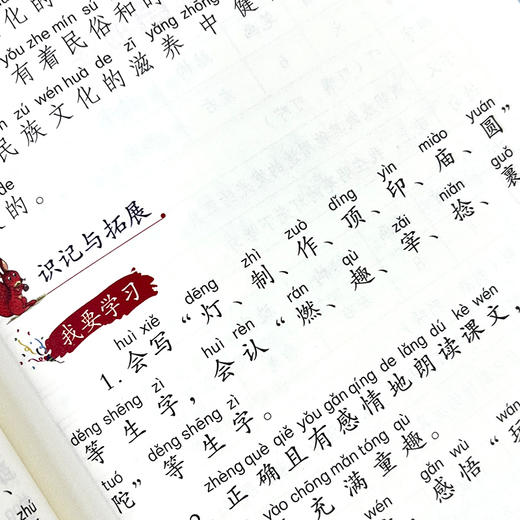 化的
yǒu zhe mín sú
有着民俗和的
zī yǎng zhōng
zú wén huà de
民族文化的滋养中健
de
的。
识记与拓展
我要学习
huì xiě dēng zhì zuò dǐng yìn miào yuán
1. 会写“灯、制、作、顶、印、庙、圆”
děng shēng zì huì rèn rán qù zǎi niǎn guǒ
等生字，会认“燃、趣、宰、捻、裹、
tuó děng shēng zì
陀”等生字。
zhèng què qiě yǒu gǎn qíng de lǎng dú kè wén
2. 正确且有感情地朗读课文，
yào chōng mǎn tóng qù gǎn wù
充满童趣。感悟“玩